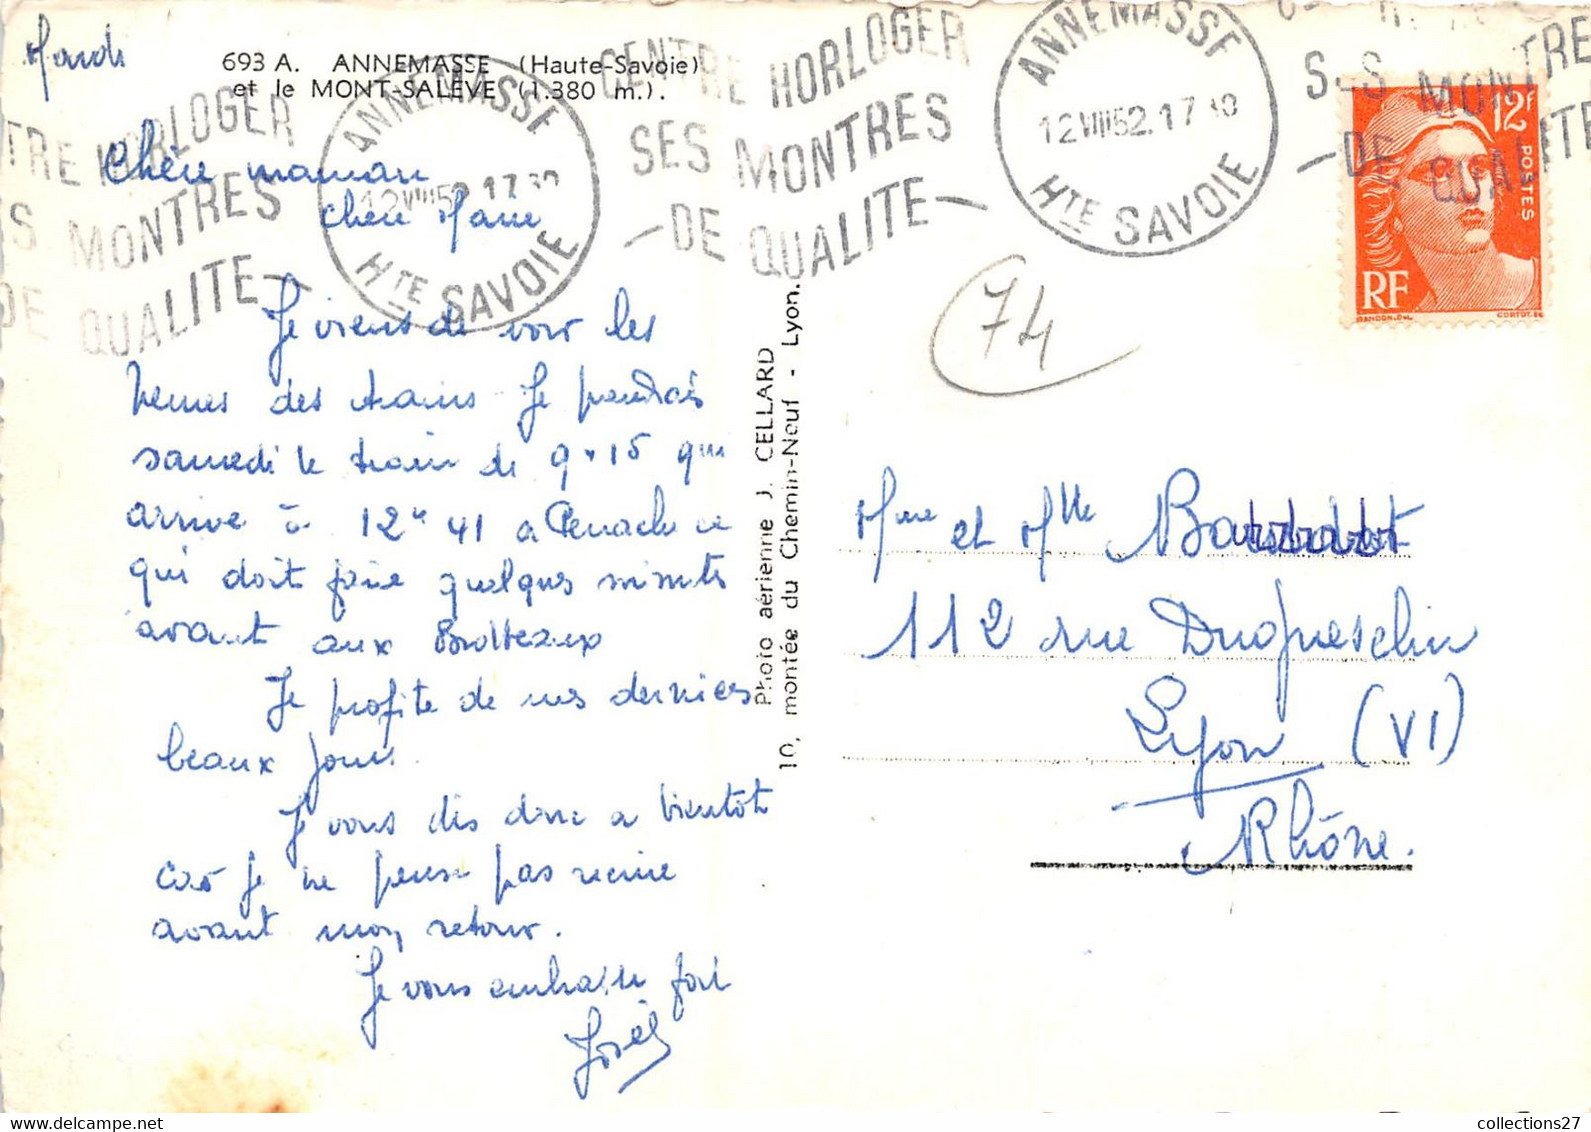 Mardi
693 A. ANNEMASSE (Haute-Savoie)
et le MONT-SALÈVE (1.380 m.).
TRE HORLOGER
S MONTRES
DE QUALITE
ANNEMASSE
12 VIII 52.17 30
HTE SAVOIE
CENTRE HORLOGER
SES MONTRES
DE QUALITE
ANNEMASSE
12 VIII 52.17 30
HTE SAVOIE
S-S MONTRE
DE QUALITE
12F
POSTES
RF
GANDON.DEL.
CORTOT.SC
74
Chère maman
chère Marie
Je viens de voir les
heures des trains Je prendrais
samedi le train de 9h15 qui
arrive à 12h 41 a Perrache ce
qui doit faire quelques minutes
avant aux Brotteaux
Je profite de mes derniers
beaux jours.
Je vous dis donc a bientôt
car je ne pense pas reecrire
avant mon retour.
Je vous embrasse fort
Photo aérienne J. CELLARD
10, montée du Chemin-Neuf - Lyon.
Mme et Mlle
112 rue Duguesclin
Lyon (VI)
Rhône.
collections27